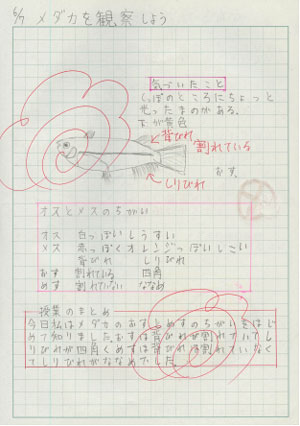 6/7 メダカを観察しよう
気づいたこと
しっぽのところにちょっと
光ったものがある。
すが黄色
背びれ
割れている
しりびれ
おす。
オスとメスのちがい
オス 白っぽいしうすい
メス 赤っぽくオレンジっぽいしこい
背びれ しりびれ
おす 割れている 四角
めす 割れていない ななめ
授業のまとめ
今日私はメダカのおすとめすのちがいをはじ
めて知りました。おすは背びれが割れていてし
りびれが四角くめすは背びれが割れていなく
てしりびれがななめでした。